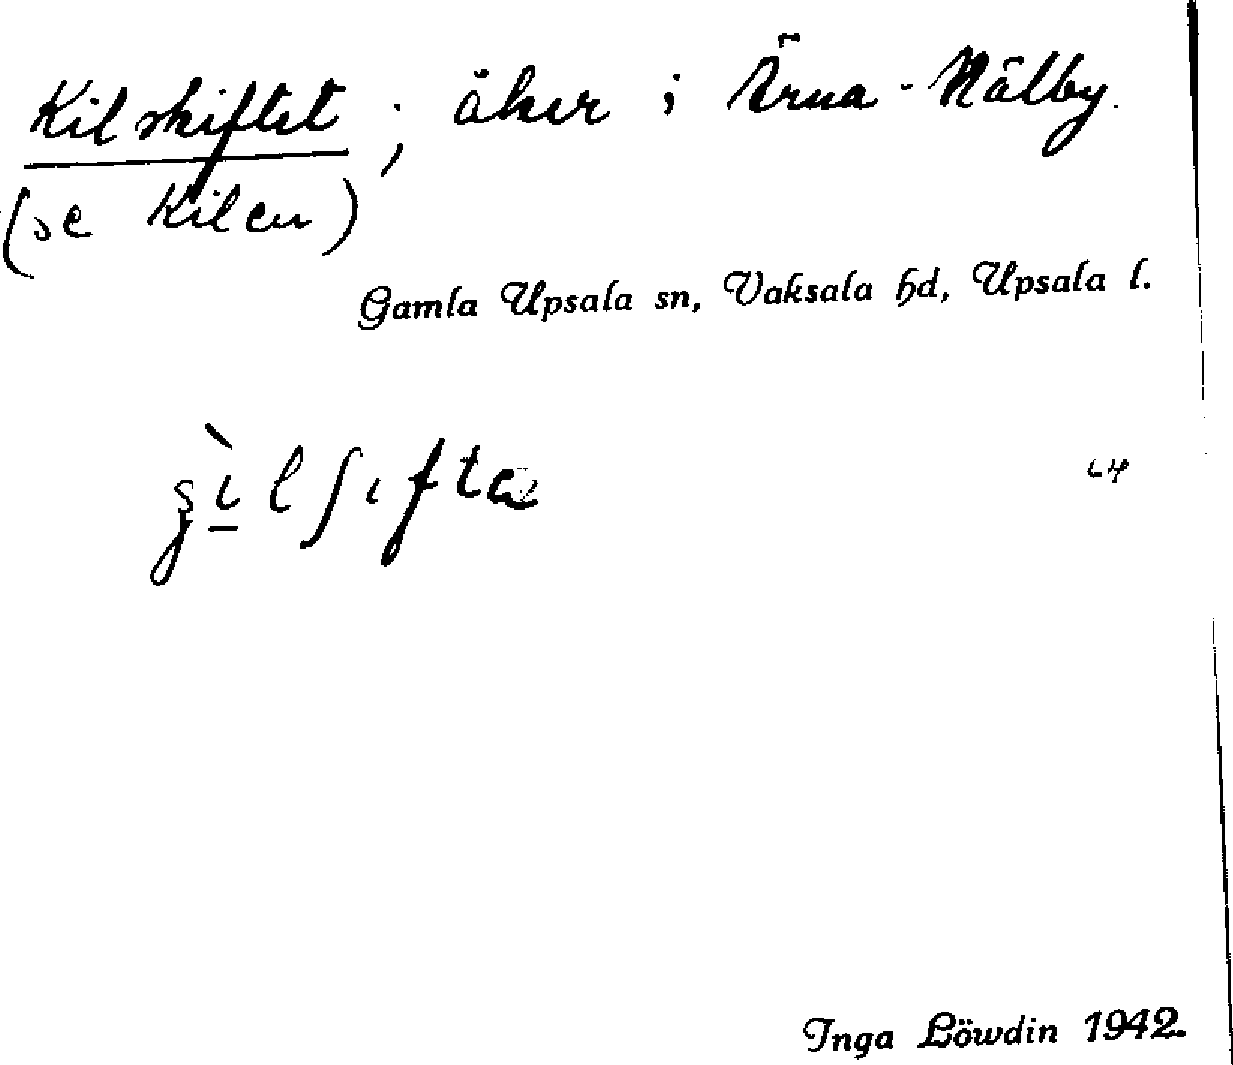 Kilskiftet ; åker i Ärna-Mälby.
(se Kilen)
Gamla Upsala sn, Vaksala hd, Upsala l.
Inga Löwdin 1942.